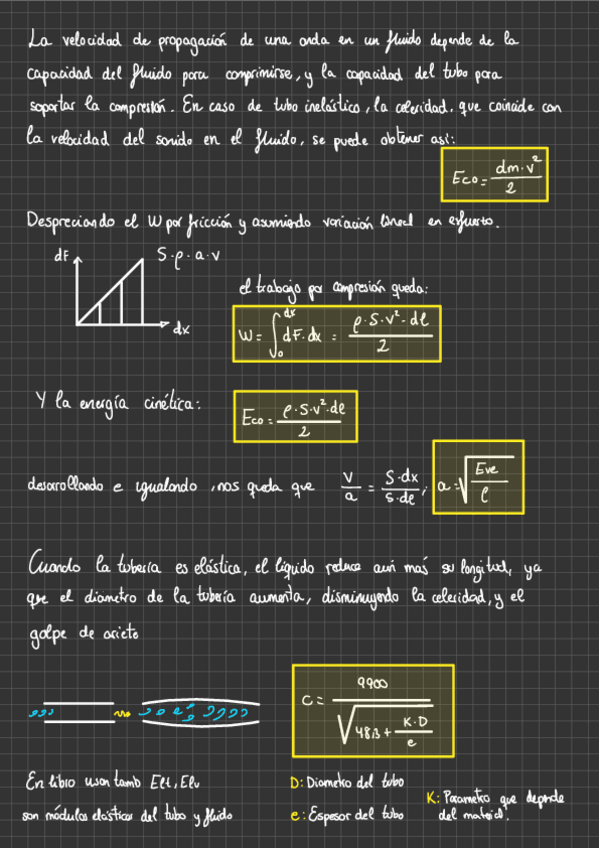 La velocidad de propagación de una onda en un fluido depende de la
capacidad del fluido para comprimirse, y la capacidad del tubo para
soportar la compresión. En caso de tubo inelástico, la celeridad, que coincide con
la velocidad del sonido en el fluido, se puede obtener así:
Eco = dm·v²/2
Despreciando el W por fricción y asumiendo variación lineal en esfuerzo.
dF S·ρ·a·v
dx
el trabajo por compresión queda:
W = ∫₀^dx dF·dx = ρ·S·v²·dl/2
Y la energía cinética: Eco = ρ·S·v²·dl/2
desarrollando e igualando, nos queda que v/a = S·dx/S·dl; a = √(Eve/ρ)
Cuando la tubería es elástica, el líquido reduce aun más su longitud, ya
que el diametro de la tubería aumenta, disminuyendo la celeridad, y el
golpe de ariete
C = 9900/√(48,3 + K·D/e)
En libro usan tamb Elt, Elv
son módulos elásticos del tubo y fluido
D: Diametro del tubo
e: Espesor del tubo
K: Parametro que depende
del material.